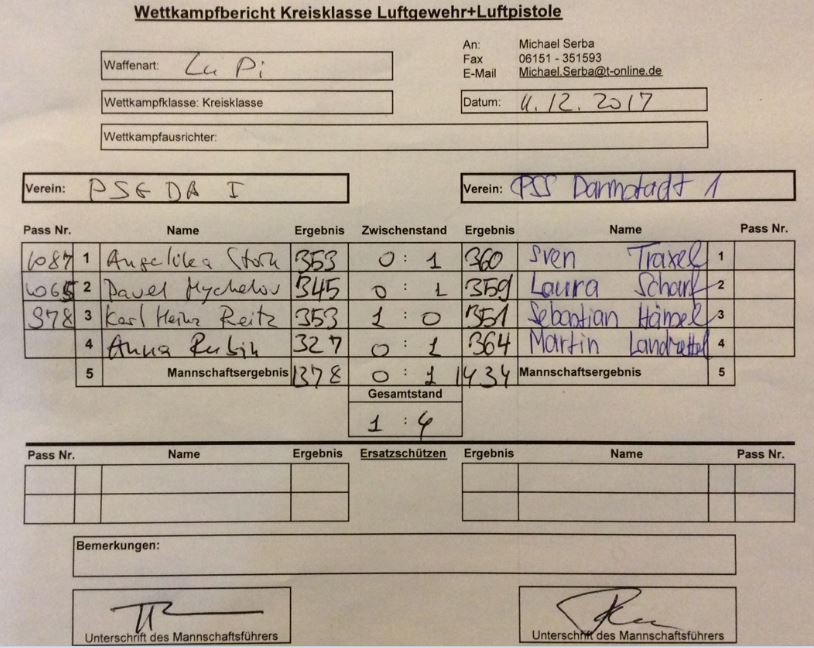 Wettkampfbericht Kreisklasse Luftgewehr+Luftpistole
An: Michael Serba
Fax 06151 - 351593
E-Mail Michael.Serba@t-online.de
Waffenart: Lu Pi
Wettkampfklasse: Kreisklasse
Datum: 11.12.2017
Wettkampfausrichter:
Verein: PSG DA I Verein: PSS Darmstadt 1
Pass Nr. Name Ergebnis Zwischenstand Ergebnis Name Pass Nr.
1087 1 Angelika Stork 353 0 : 1 360 Sven Traxel 1
2 Pavel 345 0 : 1 359 Laura Scharf 2
978 3 Karl Heinz Reitz 353 1 : 0 351 Sebastian Hänsel 3
4 Anna Rubin 327 0 : 1 364 Martin 4
5 Mannschaftsergebnis 1378 0 : 1 1434 Mannschaftsergebnis 5
Gesamtstand
1 : 4
Pass Nr. Name Ergebnis Ersatzschützen Ergebnis Name Pass Nr.
Bemerkungen:
Unterschrift des Mannschaftsführers Unterschrift des Mannschaftsführers